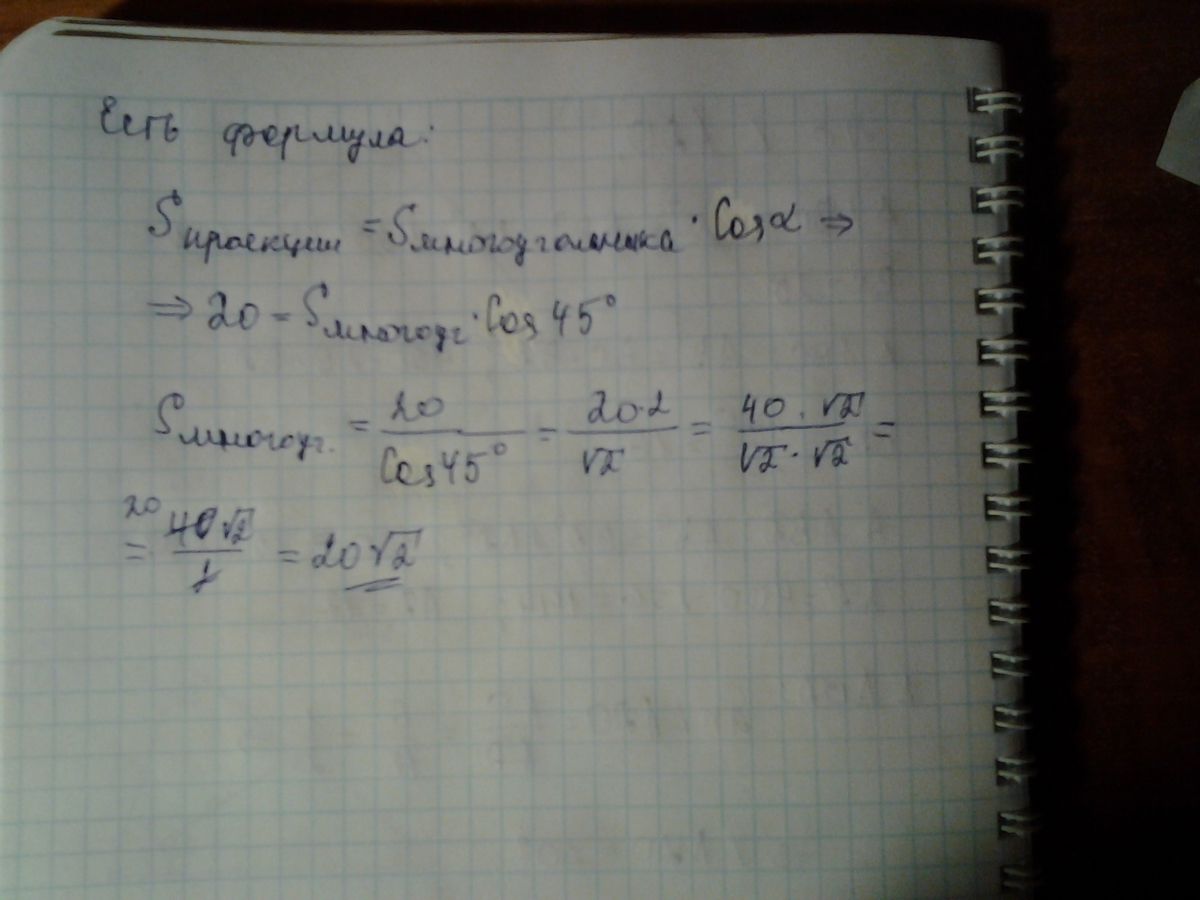 Есть формула:
S проекции = S многоугольника · Cos α ⇒
⇒ 20 = S многоуг · Cos 45°
S многоуг. = 20 / Cos 45° = 20·2 / √2 = 40 · √2 / √2 · √2 =
= 20 40√2 / 2 = 20√2